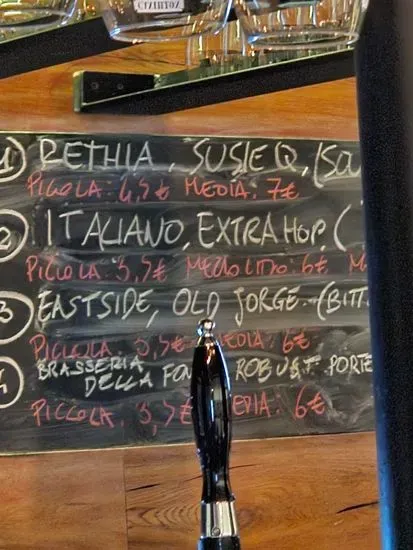 1 RETHIA, SUSIE Q, (SOU
PICCOLA: 4,5€ MEDIA: 7€
2 ITALIANO, EXTRA HOP, (
PICCOLA 3,5€ MEZZO LITRO: 6€ M
3 EASTSIDE, OLD JORGE (BITT.
PICCOLA 3,5€ MEDIA: 6€
4 BRASSERIA
DELLA FON ROBUST PORTE
PICCOLA. 3,5€ MEDIA: 6€